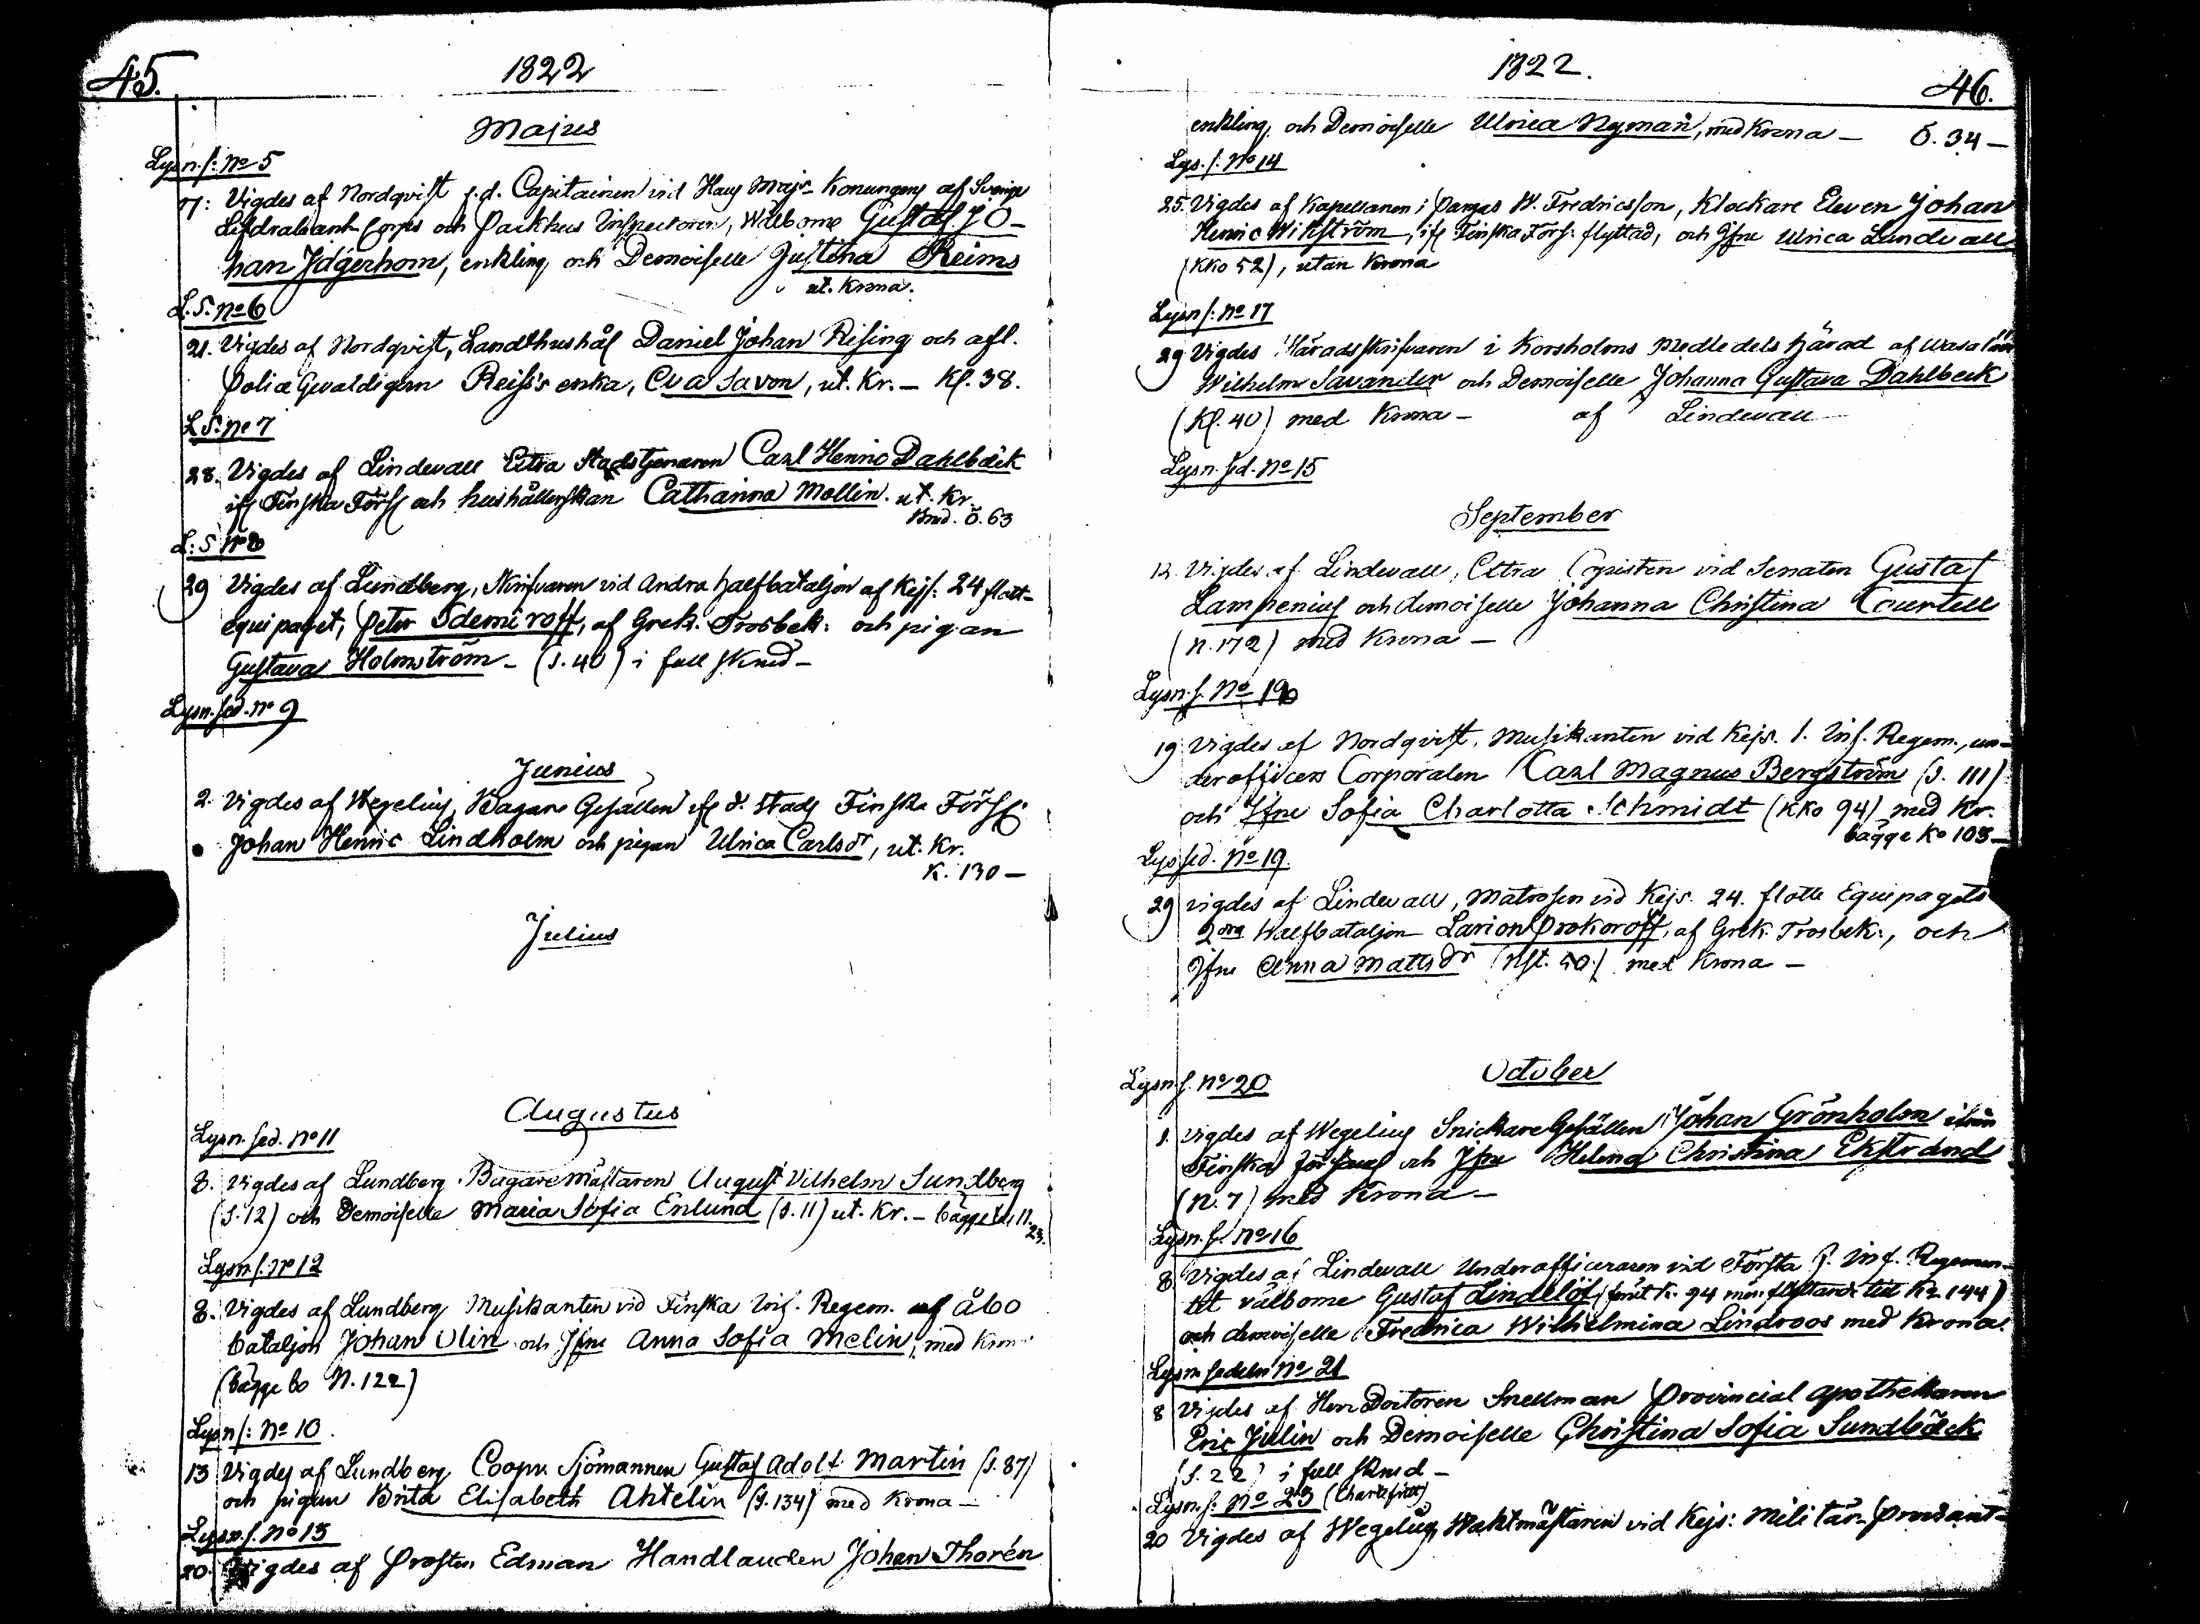 45.
1822
Majus
Lysn.s: No 5
17: Vigdes af Nordqvist f.d. Capitainen vid Hans Majs Konungens af Sverige
Lifdrabant Corps och Packhus Inspectoren, Wälborne Gustaf Jo-
han Jägerhorn, enkling, och Demoiselle Justina Reims
ut. Krona.
L.S. No 6
21. Vigdes af Nordqvist, Landthushål Daniel Johan Rising och afl.
Police Gevaldigern Reiss's enka, Eva Savon, ut. Kr. – Kl. 38.
L S: No 7
28. Vigdes af Lindevall Extra Stadstjenaren Carl Henric Dahlbäck
ifr Finska Förs och hushållerskan Catharina Mollin. ut. Kr.
Brud. Ö. 63
L: S No 8
29 Vigdes af Lundberg, Skrifvaren vid Andra halfbataljon af Kejs: 24 flott-
equipaget, Peter Sdemiroff, af Grek. Trosbek: och pigan
Gustava Holmström – (S. 40) i full skrud –
Lysn. sed. No 9
Junius
2. Vigdes af Wegelius, Bagare Gesällen ifr d. Stads Finska Förs:
Johan Henric Lindholm och pigan Ulrica Carlsdr, ut. Kr.
K. 130 –
Julius
Augustus
Lysn. sed. No 11
8. Vigdes af Lundberg Bagaremästaren August Vilhelm Sundberg
(S. 12) och Demoiselle Maria Sofia Enlund (S. 11) ut. Kr. – bägge N.
23.
Lysn.s: No 12
8. Vigdes af Lundberg Musikanten vid Finska Inf. Regem. af Åbo
bataljon Johan Ulin och Jfru Anna Sofia Melin, med Kron
(bägge bo N. 122)
Lysn s: No 10.
13 Vigdes af Lundberg Coopv. Sjömannen Gustaf Adolf Martin (S. 87)
och pigan Brita Elisabeth Ahtelin (S. 134) med Krona –
Lysn.s. No 13
20. Vigdes af Prosten Edman Handlanden Johan Thorén
1822.
46.
enkling, och Demoiselle Ulrica Nyman, med Krona – Ö. 34 –
Lys. s. No 14
25. Vigdes af Kapellanen i Pargas W. Fredricsson, Klockare Eleven Johan
Henric Wikström, ifr Finska Förs: flyttad, och Jfru Ulrica Lundevall
(KKo 52), utan Krona
Lysn s: No 17
29 Vigdes Häradsskrifvaren i Korsholms Medledels härad af Wasa län
Wilhelm Savander och Demoiselle Johanna Gustava Dahlbeck
(Kl. 40) med Krona – af Lindevall
Lysn. sed. No 15
September
12. Vigdes af Lindevall, Extra Copisten vid Senaten Gustaf
Lampenius och demoiselle Johanna Christina Courtell
(N. 172) med Krona –
Lysn. s. No 19
19 Vigdes af Nordqvist, Musikanten vid Kejs. 1. Inf. Regem., un-
derofficers Corporalen Carl Magnus Bergström (S. 111)
och Jfru Sofia Charlotta Schmidt (KKo 94) med Kr.
bägge Ko 103 –
Lys sed. No 19.
29 vigdes af Lindevall, Matrosen vid Kejs. 24. flotte Equipagets
2dra Halfbataljon Larion Prokoroff, af Grek. Trosbek., och
Jfru Anna Mattsdr (Nst. 50) med Krona –
October
Lysn s. No 20
1. vigdes af Wegelius Snickare Gesällen Johan Grönholm ifrån
Finska Förs och Jfru Helena Christina Ekstrand
(N. 7) med Krona –
Lysn. s. No 16
8 Vigdes af Lindevall Underofficeraren vid Första F. Inf. Regemen-
tet välborne Gustaf Lindelöf (förut K. 94 men flyttande till K. 144)
och demoiselle Fredrica Wilhelmina Lindroos med Krona.
Lysn sedeln No 21
8 Vigdes af Herr Doctoren Snellman Provincial apothekaren
Eric Julin och Demoiselle Christina Sofia Sundbäck
(S. 22) i full skrud –
Lysn. s: No 23
20 Vigdes af Wegelius, Waktmästaren vid Kejs: Militär Proviant-